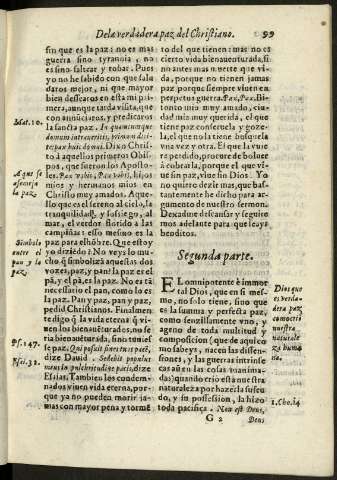 De la verdadera paz del Christiano. 99
sin que es la paz: no es mas
guerra sino tyrania, no
es sino saltar y robar. Pues
yo no he sabido con que salu
daros mejor, ni que mayor
bien dessearos en esta mi pri
mera, aunque tarda visita, que
con annūciaros, y predicaros
Mat. 10.
la sancta paz. In quamcunque
domum intraueritis, primum dici-
te pax huic domui. Dixo Christo
à aquellos primeros Obis-
pos, que fueron los Aposto-
les. Pax vobis, Pax vobis, hijos
A que se
asemeja
la paz.
mios y hermanos mios en
Christo muy amados. Aque-
llo que es el sereno al cielo, la
tranquilidad, y sossiego, al
mar, el verdor florido a las
campiñas: esso mesmo es la
paz para el hōbre. Que estoy
Simbolo
entre el
pan y la
paz.
yo diziēdo? No veys lo mu-
cho q̃ simbolizā aquestas dos
vozes, paz, y pan? la paz es el
pā, y el pā, es la paz. No es tā
necessario el pan, como lo es
la paz. Pan y paz, paz y pan,
pedid Christianos. Finalmen
te digo q̃ la vida eterna q̃ vi-
uen los bienauēturados, no se
ria bienauēturada, sinn tuuies
Ps. 147.
se paz. Qui posuit fines tuos pacē,
Esai. 32.
dize Dauid. Sedebit populus
meus in pulchritudine pacis, dize
Esaias. Tambien los conden-
nados viuen vida eterna, por-
que ya no pueden morir ja-
mas con mayor pena y tormē
to del que tienen: mas no es
cierto vida bienauenturada, si
no antes mas muerte que vi-
da, porque no tienen jamas
paz porque siempre viuen en
perpetua guerra. Pax, Pax. Bi-
tonto mia muy amado, ciu-
dad mia muy querida, el que
tiene paz conseruela y goze-
la, el que no la tiene busquela
vna vez y otra. El que la vuie
re perdido, procure de boluer
à cobrarla, porque el que vi-
ue sin paz, viue sin Dios. Yo
no quiero dezir mas, que bas-
tantemente he dicho para ar-
gumento de nuestro sermon.
Dexadme descansar y seguire
mos adelante para que le aca-
benditos.
Segunda parte.
EL omnipotente è immor
tal Dios, que en si mes-
mo, no solo tiene, sino que
es la summa y perfecta paz,
como senzillissimente vno, y
ageno de toda multitud y
composicion (de que aquico
Dios que
es verda-
dera paz
compuesta
nuestra
naturale-
za huma
na.
mo sabeys, nacen las dissen-
siones, y las guerras intrinse
cas aū en las cosas inanima-
das) quando criò està nuestra
naturaleza por hazerla sujeto
suyo, y su possession, la hizo
1. Cho. 14
toda pacifica. Non est Deus,
G 2 Deus